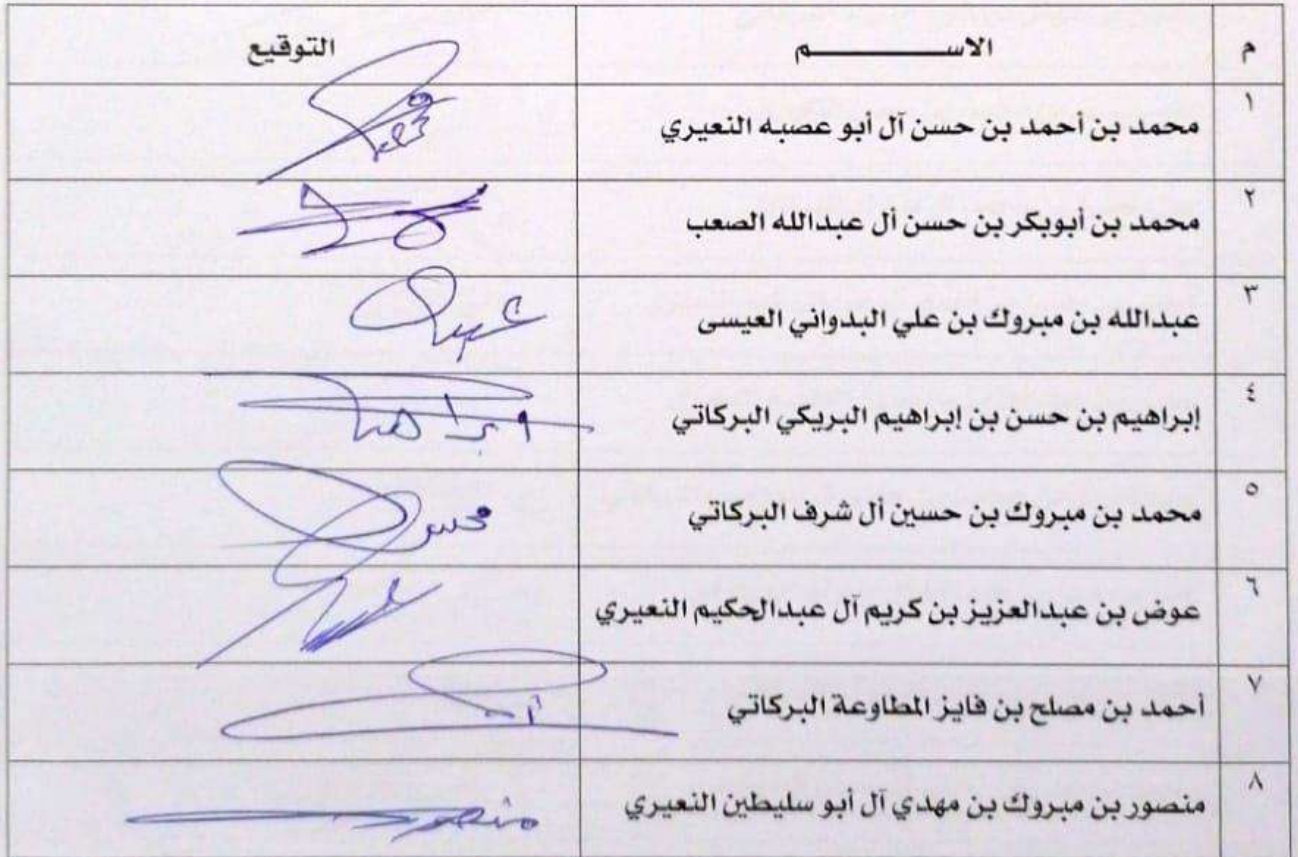 م الاســــــــــم التوقيع
١ محمد بن أحمد بن حسن آل أبو عصبه النعيري
٢ محمد بن أبوبكر بن حسن أل عبدالله الصعب
٣ عبدالله بن مبروك بن علي البدواني العيسى
٤ إبراهيم بن حسن بن إبراهيم البريكي البركاتي
٥ محمد بن مبروك بن حسين أل شرف البركاتي
٦ عوض بن عبدالعزيز بن كريم آل عبدالحكيم النعيري
٧ أحمد بن مصلح بن فايز المطاوعة البركاتي
٨ منصور بن مبروك بن مهدي آل أبو سليطين النعيري منصور